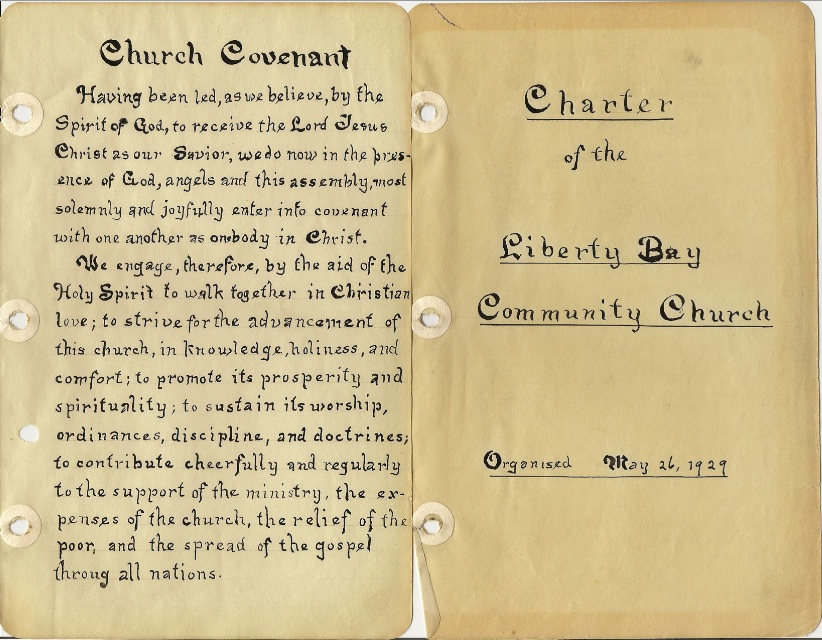 Church Covenant
Having been led, as we believe, by the
Spirit of God, to receive the Lord Jesus
Christ as our Savior, we do now in the pres-
ence of God, angels and this assembly, most
solemnly and joyfully enter into covenant
with one another as onebody in Christ.
We engage, therefore, by the aid of the
Holy Spirit to walk together in Christian
love; to strive for the advancement of
this church, in knowledge, holiness, and
comfort; to promote its prosperity and
spirituality; to sustain its worship,
ordinances, discipline, and doctrines;
to contribute cheerfully and regularly
to the support of the ministry, the ex-
penses of the church, the relief of the
poor, and the spread of the gospel
throug all nations.
Charter
of the
Liberty Bay
Community Church
Organised May 26, 1929